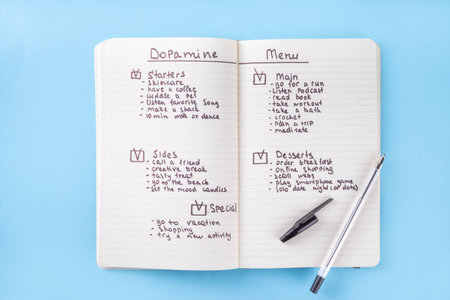 Dopamine Menu
Starters
- skincare
- have a coffee
- cuddle a pet
- listen favorite song
- make a shack
- 10 min walk or dance
Sides
- call a friend
- creative break
- tasty treat
- go to the beach
- set the mood candles
Special
- go to vacation
- shopping
- try a new activity
Main
- go for a run
- listen podcast
- read book
- take workout
- take a bath
- crochet
- plan a trip
- meditate
Desserts
- order breakfast
- online shopping
- scroll webs
- play smartphone game
- solo date night (or date)